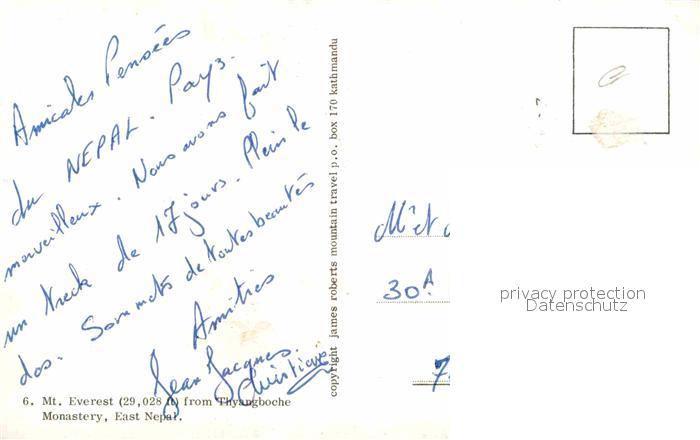 Amicales Pensées
du NEPAL. Pays
merveilleux. Nous avons fait
un Treck de 17 jours. Plein le
dos. Sommets de toutes beautés
Amitiés
Jean Jacques.
6. Mt. Everest (29,028 ft) from Thyangboche
Monastery, East Nepal.
copyright james roberts mountain travel p.o. box 170 kathmandu
M. et
30A
7
privacy protection
Datenschutz